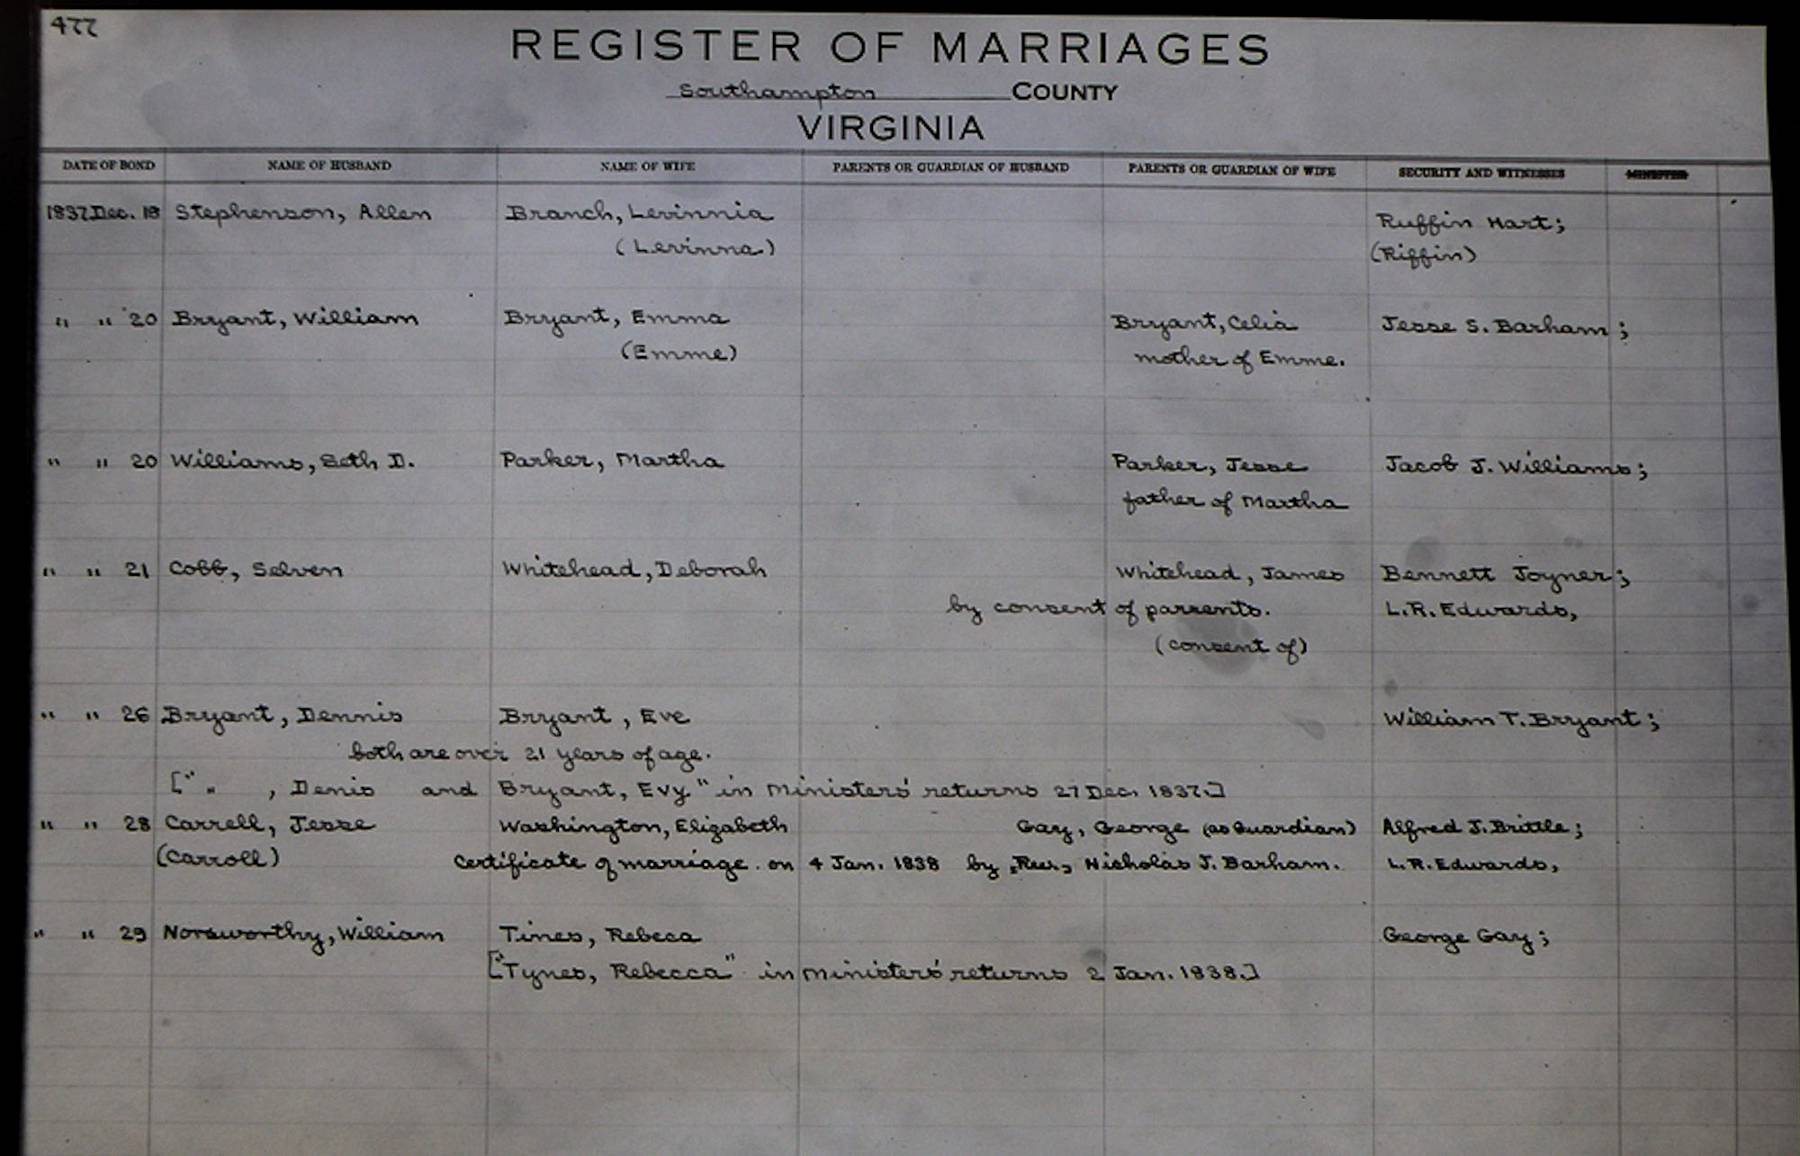 477
REGISTER OF MARRIAGES
Southampton COUNTY
VIRGINIA
DATE OF BOND NAME OF HUSBAND NAME OF WIFE PARENTS OR GUARDIAN OF HUSBAND PARENTS OR GUARDIAN OF WIFE SECURITY AND WITNESSES MINISTER
1837 Dec. 18 Stephenson, Allen Branch, Levinnia Ruffin Hart;
(Levinna) (Riffin)
" " 20 Bryant, William Bryant, Emma Bryant, Celia Jesse S. Barham;
(Emme) mother of Emme.
" " 20 Williams, Seth D. Parker, Martha Parker, Jesse Jacob J. Williams;
father of Martha
" " 21 Cobb, Selven Whitehead, Deborah Whitehead, James Bennett Joyner;
by consent of parrents. L.R. Edwards,
(consent of)
" " 26 Bryant, Dennis Bryant, Eve William T. Bryant;
both are over 21 years of age.
[" " , Denis and Bryant, Evy" in Ministers' returns 27 Dec. 1837.]
" " 28 Carrell, Jesse Washington, Elizabeth Gay, George (as Guardian) Alfred J. Brittle;
(Carroll) Certificate of marriage on 4 Jan. 1838 by Rev. Nicholas J. Barham. L.R. Edwards,
" " 29 Norsworthy, William Tines, Rebeca George Gay;
["Tynes, Rebecca" in Ministers' returns 2 Jan. 1838.]